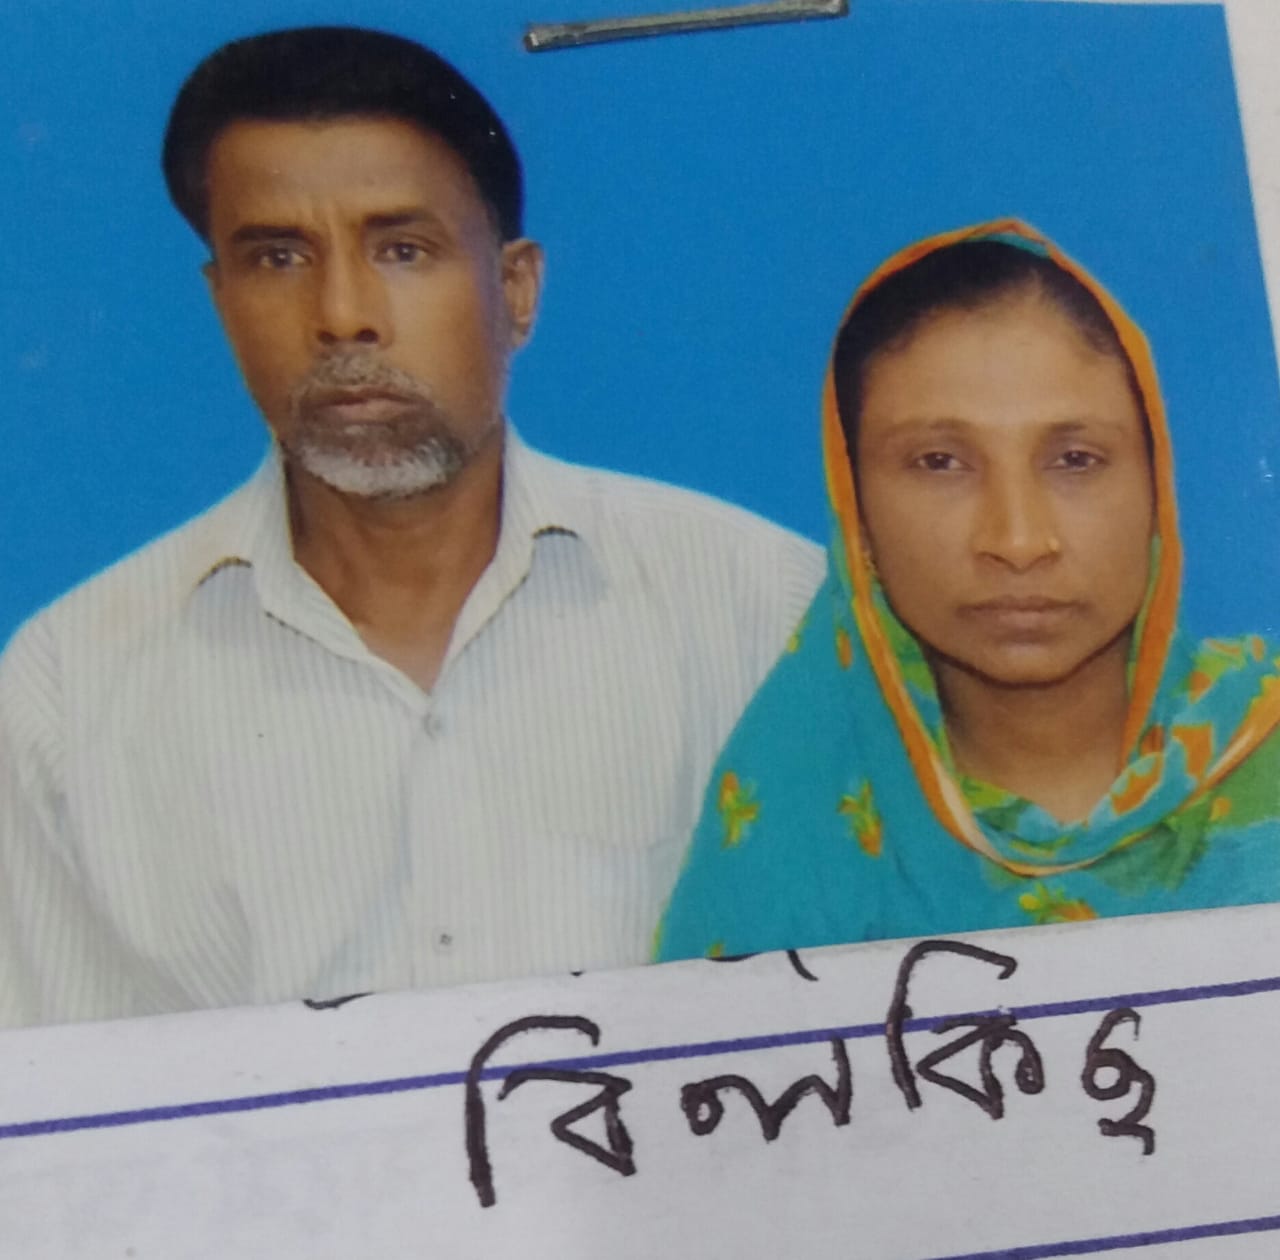 বিলকিছ